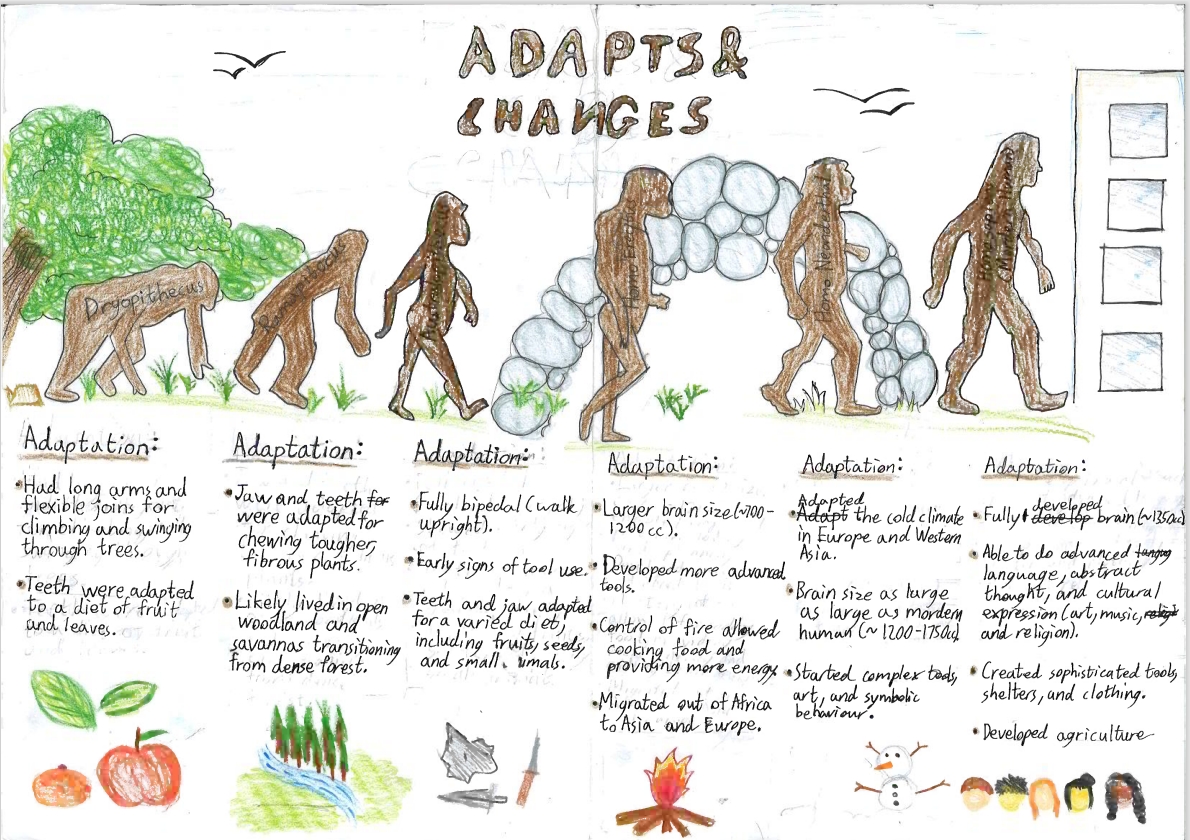 ADAPTS &
CHANGES
Dryopithecus
Homo
Homo
Adaptation:
•Had long arms and
flexible joins for
climbing and swinging
through trees.
•Teeth were adapted
to a diet of fruit
and leaves.
Adaptation:
•Jaw and teeth for
were adapted for
chewing tougher,
fibrous plants.
•Likely lived in open
woodland and
savannas transitioning
from dense forest.
Adaptation:
•Fully bipedal (walk
upright).
•Early signs of tool use.
•Teeth and jaw adapted
for a varied diet,
including fruits, seeds,
and small
Adaptation:
•Larger brain size (~700-
1200 cc).
•Developed more advanced
tools.
•Control of fire allowed
cooking food and
providing more energy.
•Migrated out of Africa
to Asia and Europe.
Adaptation:
Adapted
•Adapt the cold climate
in Europe and Western
Asia.
•Brain size as large
as large as mordern
human (~1200-1750cc)
•Started complex tools,
art, and symbolic
behaviour.
Adaptation:
developed
•Fully develop brain (~1350cc)
•Able to do advanced
language, abstract
thought, and cultural
expression (art, music,
and religion).
•Created sophisticated tools,
shelters, and clothing.
•Developed agriculture